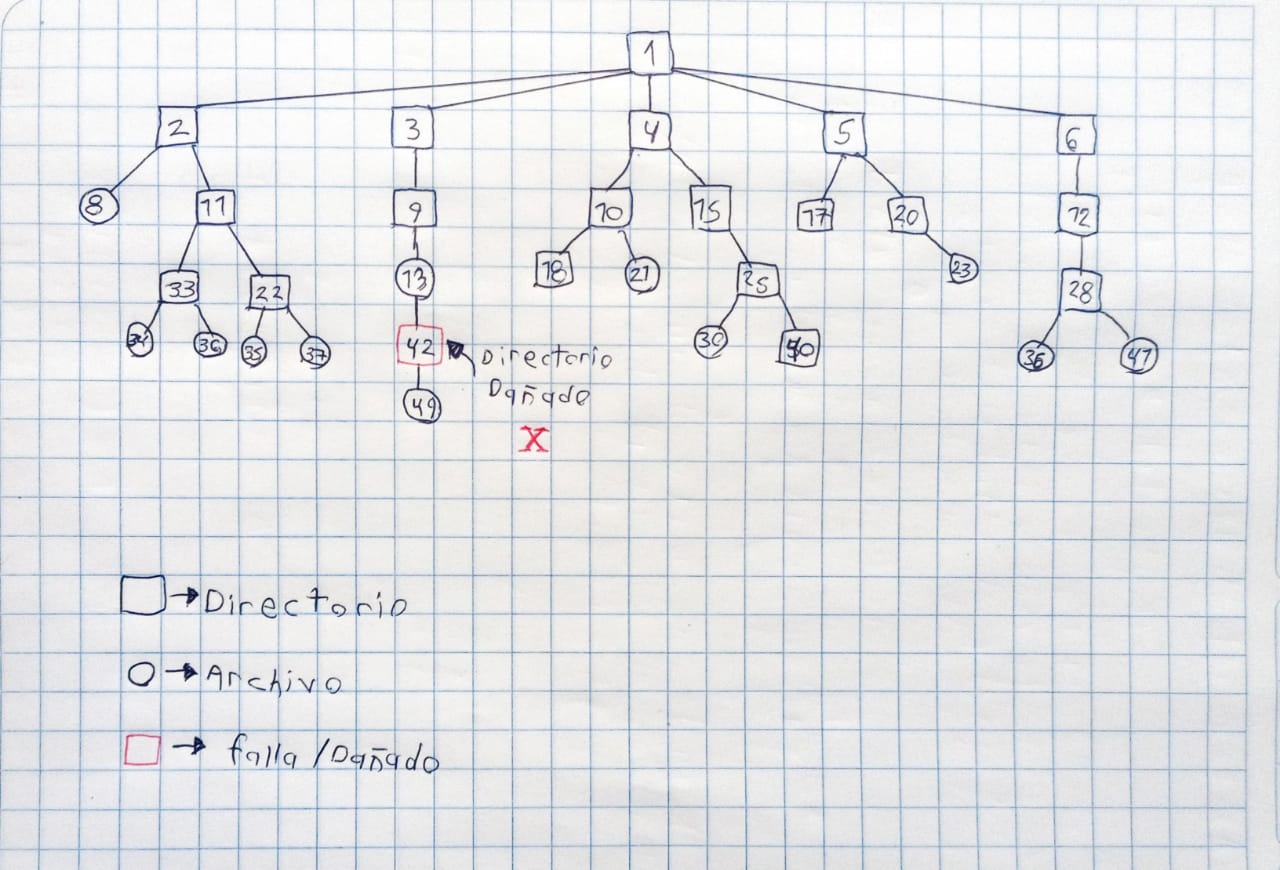 1
2 3 4 5 6
8 11 9 10 15 17 20 12
33 22 13 18 21 25 23 28
34 36 35 37 42 30 36
Directorio
Dañado
49
X
Directorio
Archivo
falla/Dañado